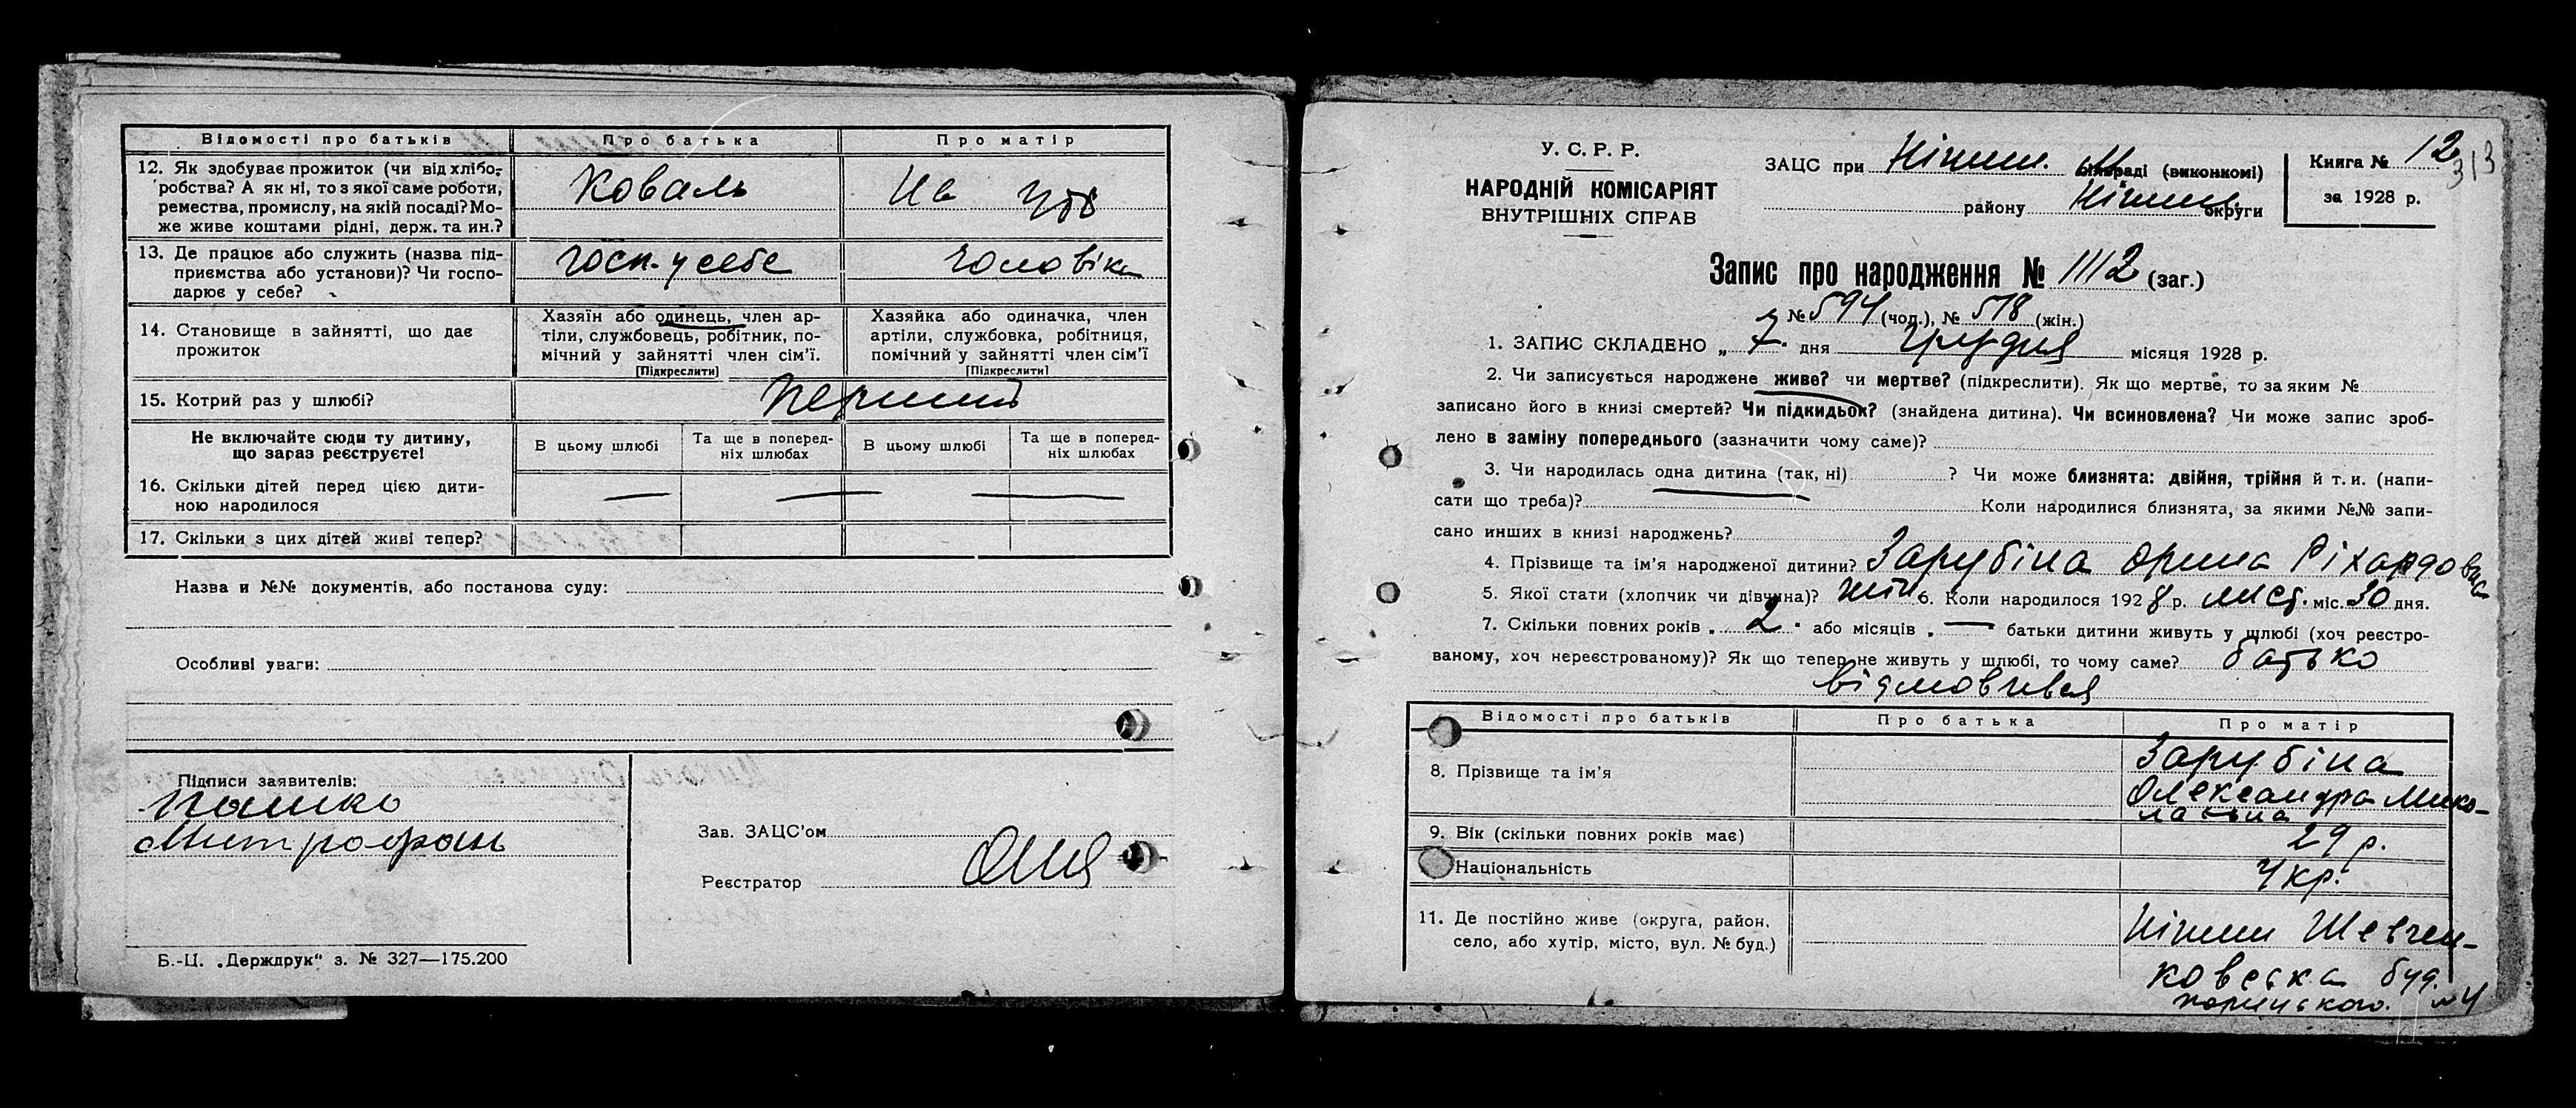 Відомості про батьків
Про батька
Про матір
12. Як здобуває прожиток (чи від хлібо-
робства? А як ні, то з якої саме роботи,
ремества, промислу, на якій посаді? Мо-
же живе коштами рідні, держ. та ин.?
Коваль
На утр
13. Де працює або служить (назва під-
приємства або установи)? Чи госпо-
дарює у себе?
госп. у себе
чоловіка
14. Становище в зайнятті, що дає
прожиток
Хазяїн або одинець, член ар-
тіли, службовець, робітник, по-
мічний у зайнятті член сім’ї.
[Підкреслити]
Хазяйка або одиначка, член
артіли, службовка, робітниця,
помічний у зайнятті член сім’ї
[Підкреслити]
15. Котрий раз у шлюбі?
перший
Не включайте сюди ту дитину,
що зараз реєструєте!
В цьому шлюбі
Та ще в поперед-
ніх шлюбах
В цьому шлюбі
Та ще в поперед-
ніх шлюбах
16. Скільки дітей перед цією дити-
ною народилося
— — —
17. Скільки з цих дітей живі тепер?
Назва и №№ документів, або постанова суду:
Особливі уваги:
Підписи заявителів:
Пашко
Митрофань
Зав. ЗАЦС’ом
Реєстратор
Б.-Ц. „Держдрук“ з. № 327—175.200
У. С. Р. Р.
НАРОДНІЙ КОМІСАРІЯТ
ВНУТРІШНІХ СПРАВ
ЗАЦС при Ніжин. М раді (виконкомі)
району Ніжин. округи
Книга № 12
313
за 1928 р.
Запис про народження № 1112 (заг.)
№ 594 (чол.), № 518 (жін.)
1. ЗАПИС СКЛАДЕНО „ 7 . дня грудня місяця 1928 р.
2. Чи записується народжене живе? чи мертве? (підкреслити). Як що мертве, то за яким №
записано його в книзі смертей? Чи підкидьок? (знайдена дитина). Чи всиновлена? Чи може запис зроб-
лено в заміну попереднього (зазначити чому саме)?
3. Чи народилась одна дитина (так, ні) ? Чи може близнята: двійня, трійня й т. и. (напи-
сати що треба)? Коли народилися близнята, за якими №№ запи-
сано инших в книзі народжень?
4. Прізвище та ім’я народженої дитини? Зарубіна Орина Ріхардовна
5. Якої стати (хлопчик чи дівчина)? жін. 6. Коли народилося 1928 р. лист. міс. 30 дня.
7. Скільки повних років „ 2 “ або місяців „ — батьки дитини живуть у шлюбі (хоч реєстро-
ваному, хоч нереєстрованому)? Як що тепер не живуть у шлюбі, то чому саме? батько
відмовився
Відомості про батьків
Про батька
Про матір
8. Прізвище та ім’я
Зарубіна
Олександра Мико-
лаєвна
9. Вік (скільки повних років має)
29 р.
Національність
Укр.
11. Де постійно живе (округа, район,
село, або хутір, місто, вул. № буд.)
Ніжин Шевчен-
ковська буд.
№ 4